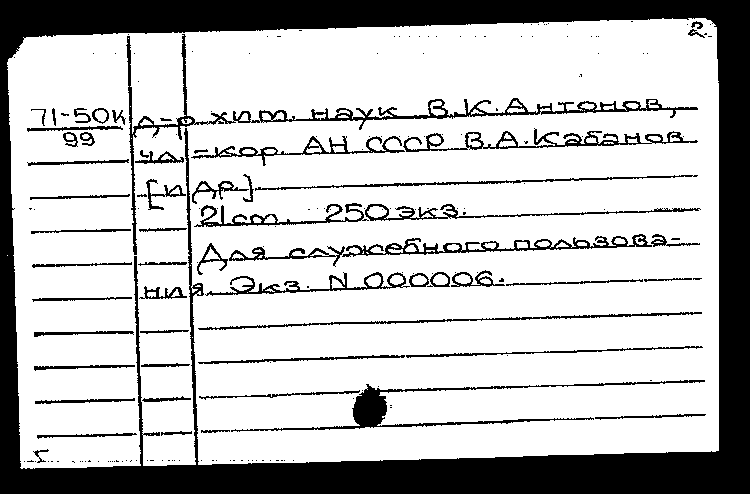 2.
71-50к д-р хим. наук В.К.Антонов,
99 чл.-кор. АН СССР В.А.Кабанов
[и др]
21 cm. 250 экз.
Для служебного пользова-
ния. Экз. N 000006.